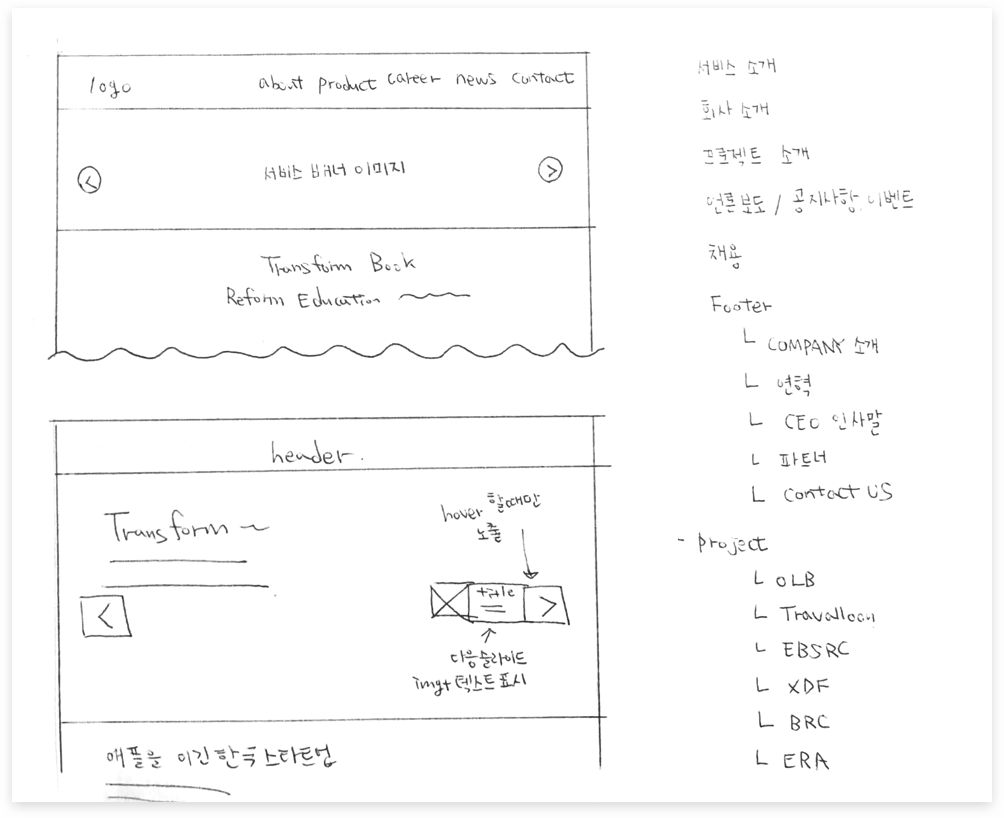 logo
about product career news contact
<
서비스 배너 이미지
>
Transform Book
Reform Education
header.
Transform ~
hover 할때만
노출
<
title
>
다음슬라이드
img+텍스트 표시
애플을 이긴 한국 스타트업
서비스 소개
회사 소개
프로젝트 소개
언론보도 / 공지사항, 이벤트
채용
Footer
└ COMPANY 소개
└ 연혁
└ CEO 인사말
└ 파트너
└ Contact US
- project
└ OLB
└ Travalloon
└ EBSRC
└ XDF
└ BRC
└ ERA